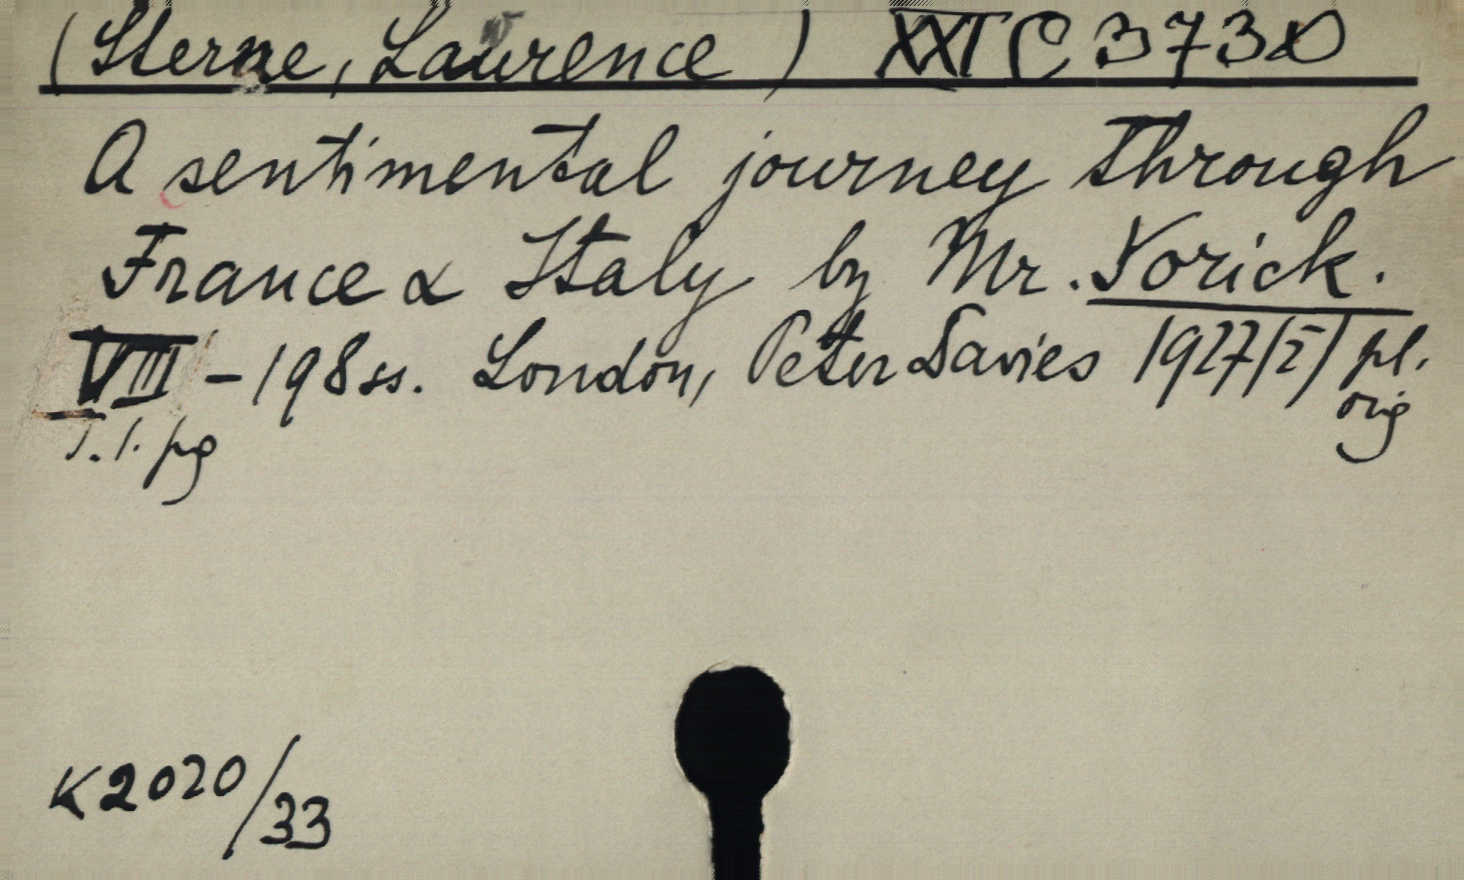 (Sterne, Laurence) XXI C 3730
A sentimental journey through
France & Italy by Mr. Yorick.
VIII - 198 ss. London, Peter Davies 1927 pl.
orig
1.1. pg
K2020/33